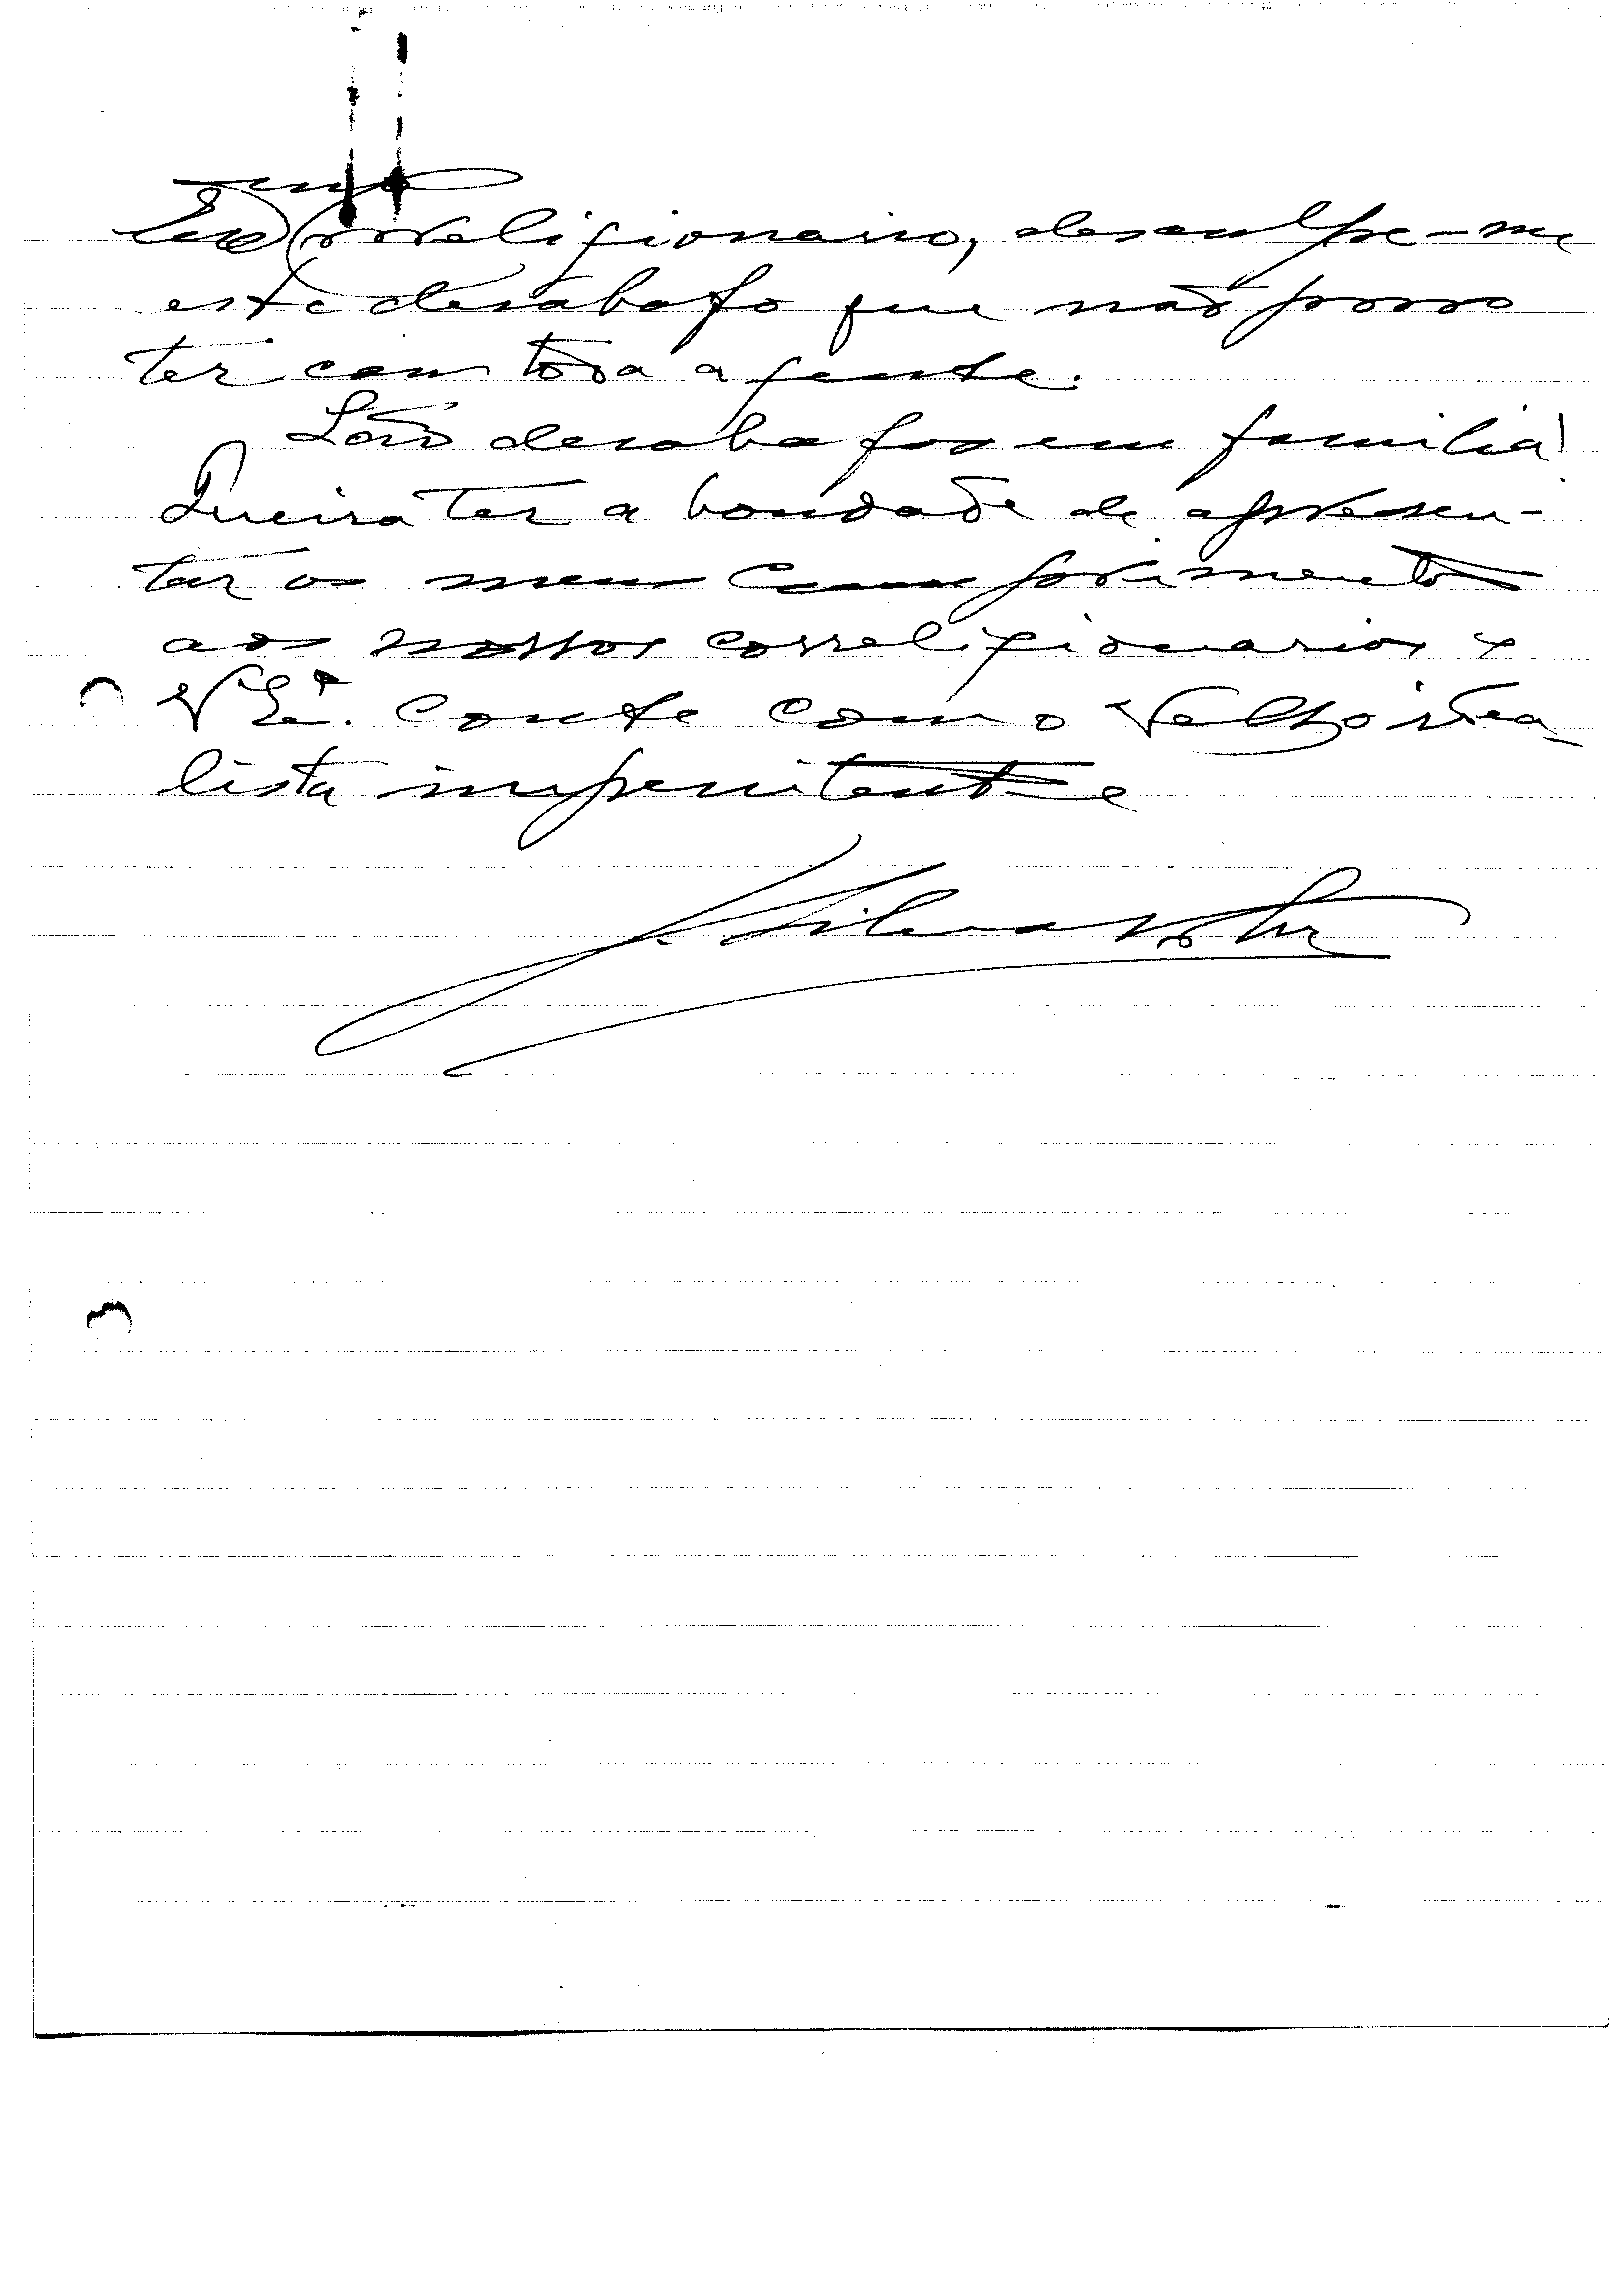 Exmo Correligionario, desculpe-me
este desabafo que não posso
ter com toda a gente.
São desabafos em familia!
Queira ter a bondade de apresen-
tar os meus cumprimentos
aos nossos correligionarios e
V. Exª. conte com o velho idea-
lista impenitente